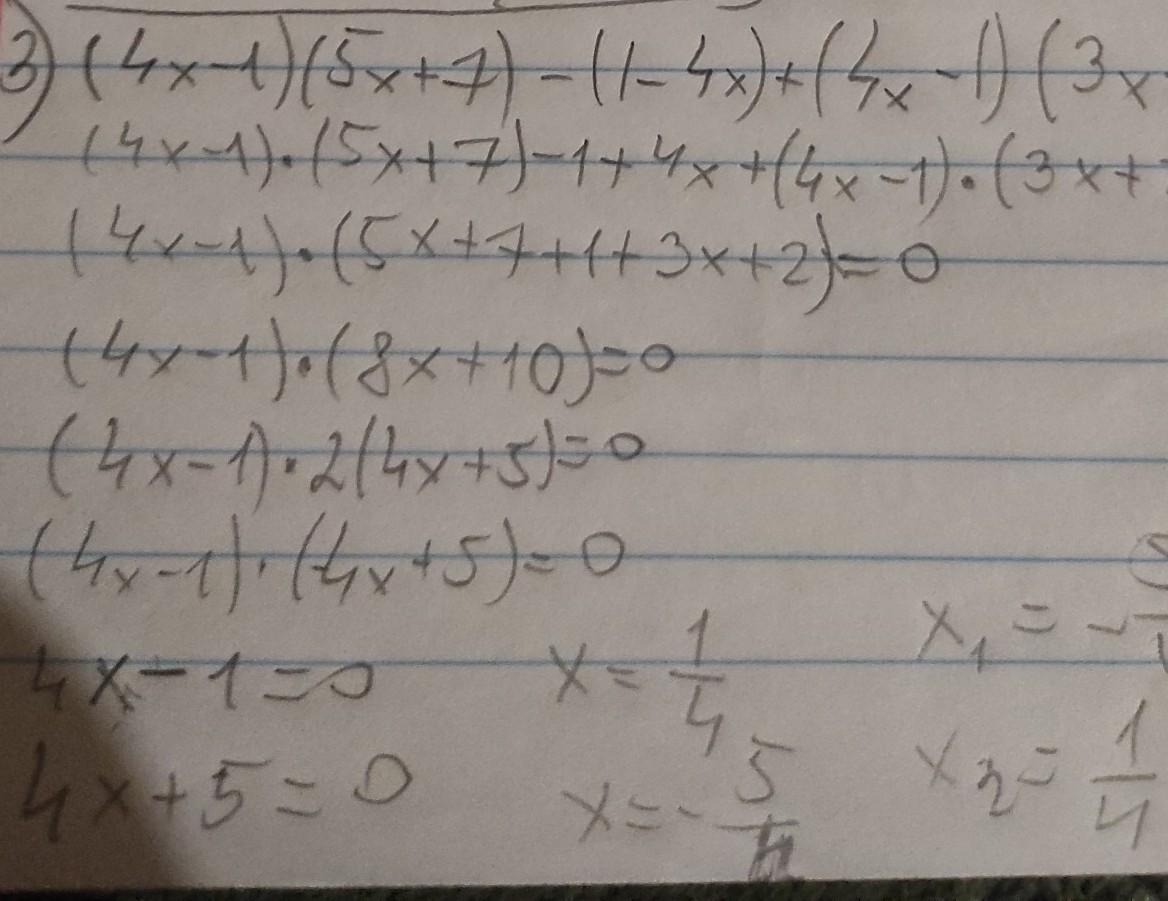 3) (4x-1)(5x+7)-(1-4x)+(4x-1)(3x
(4x-1)·(5x+7)-1+4x+(4x-1)·(3x+
(4x-1)·(5x+7+1+3x+2)=0
(4x-1)·(8x+10)=0
(4x-1)·2(4x+5)=0
(4x-1)·(4x+5)=0
4x-1=0 x=1/4 x₁=-5/
4x+5=0 x=-5/4 x₂=1/4